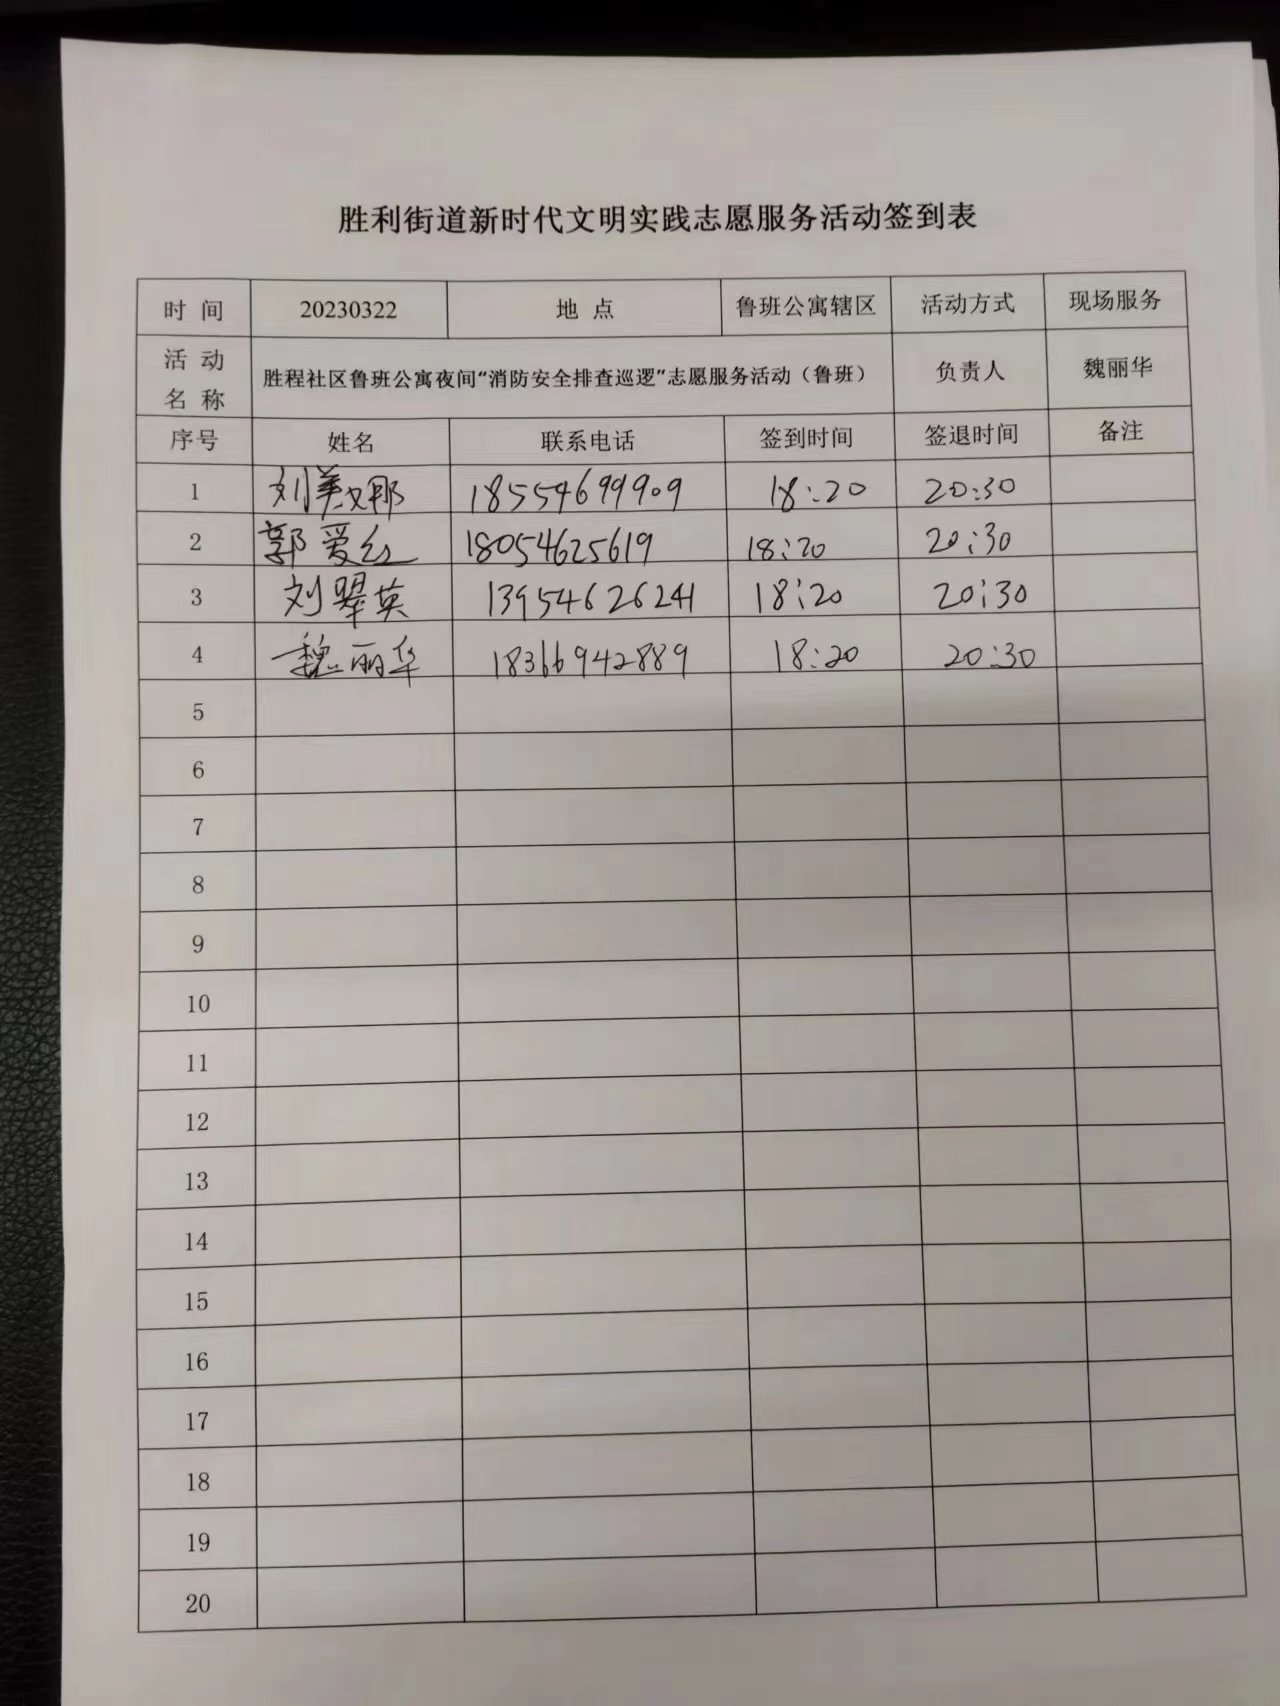 胜利街道新时代文明实践志愿服务活动签到表
时 间 20230322 地 点 鲁班公寓辖区 活动方式 现场服务
活 动 名 称 胜程社区鲁班公寓夜间“消防安全排查巡逻”志愿服务活动（鲁班） 负责人 魏丽华
序号 姓名 联系电话 签到时间 签退时间 备注
1 刘美娜 18554699909 18:20 20:30
2 郭爱红 18054625619 18:20 20:30
3 刘翠英 13954626241 18:20 20:30
4 魏丽华 18366942889 18:20 20:30
5
6
7
8
9
10
11
12
13
14
15
16
17
18
19
20